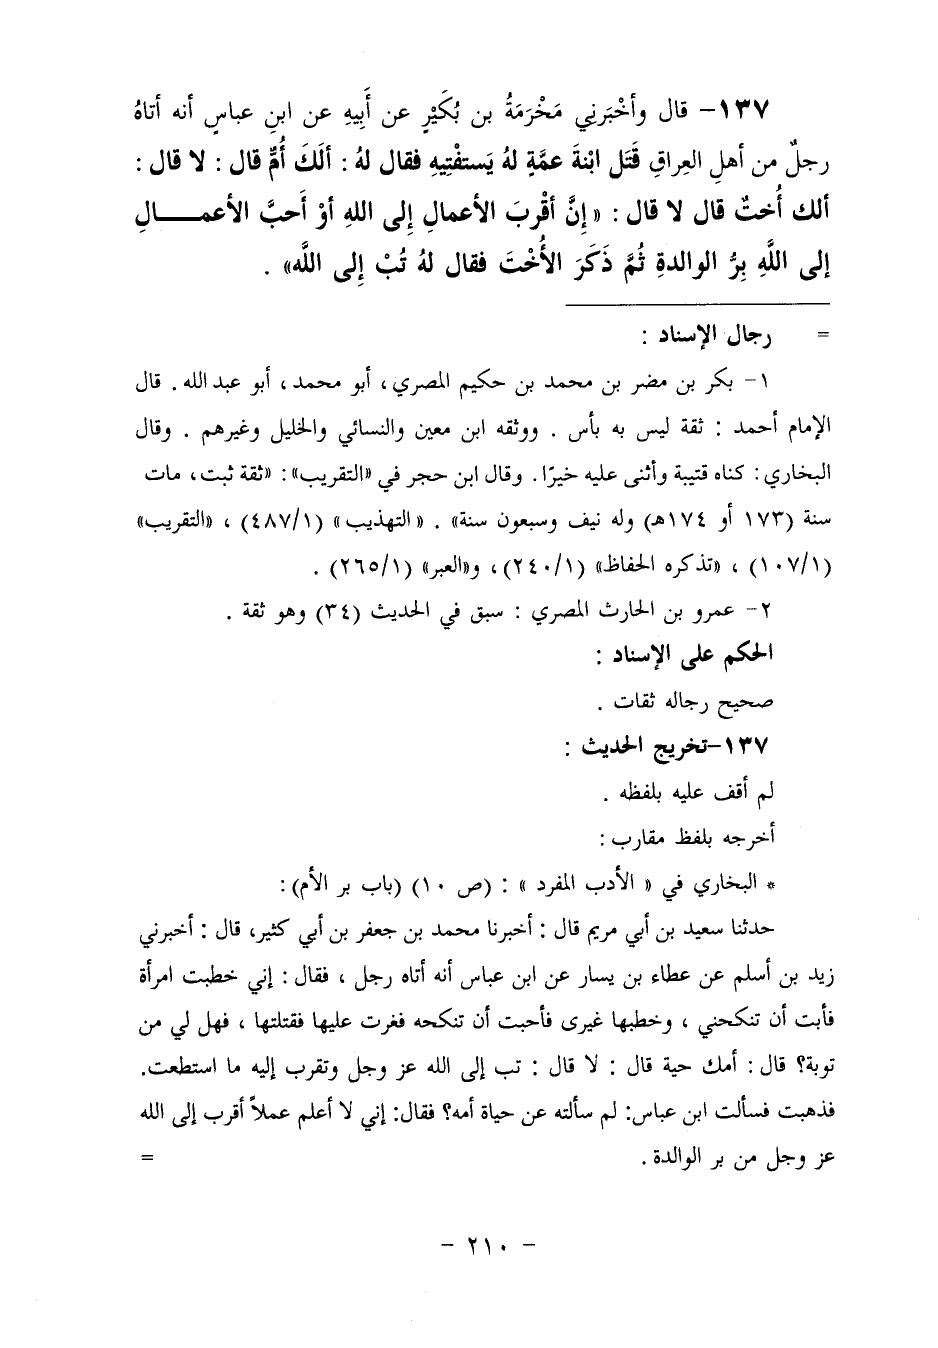 ١٣٧– قال وأخْبَرني مَخْرَمَةُ بن بُكَيْرٍ عن أَبِيهِ عن ابنِ عباسٍ أنه أتاهُ
رجلٌ من أهلِ العِراقِ قَتَل ابْنةَ عمَّةٍ لهُ يَستفْتِيهِ فقال لهُ : ألَكَ أُمٌّ قال : لا قال :
ألك أُختٌ قال لا قال : «إنَّ أقْربَ الأعمالِ إلى اللهِ أوْ أَحبَّ الأعمـــــالِ
إلى اللَّهِ بِرُّ الوالدةِ ثُمَّ ذَكَرَ الأُخْتَ فقال لهُ تُبْ إلى اللَّه» .
= رجال الإسناد :
١– بكر بن مضر بن محمد بن حكيم المصري، أبو محمد، أبو عبد الله . قال
الإمام أحمد : ثقة ليس به بأس . ووثقه ابن معين والنسائي والخليل وغيرهم . وقال
البخاري : كناه قتيبة وأثنى عليه خيرًا. وقال ابن حجر في «التقريب»: «ثقة ثبت، مات
سنة (١٧٣ أو ١٧٤هـ) وله نيف وسبعون سنة» . «التهذيب» (٤٨٧/١) ، «التقريب»
(١٠٧/١) ، «تذكره الحفاظ» (٢٤٠/١)، و«العبر» (٢٦٥/١) .
٢– عمرو بن الحارث المصري : سبق في الحديث (٣٤) وهو ثقة .
الحكم على الإسناد :
صحيح رجاله ثقات .
١٣٧–تخريج الحديث :
لم أقف عليه بلفظه .
أخرجه بلفظ مقارب :
* البخاري في « الأدب المفرد » : (ص ١٠) (باب بر الأم):
حدثنا سعيد بن أبي مريم قال : أخبرنا محمد بن جعفر بن أبي كثير، قال : أخبرني
زيد بن أسلم عن عطاء بن يسار عن ابن عباس أنه أتاه رجل ، فقال : إني خطبت امرأة
فأبت أن تنكحني ، وخطبها غيرى فأحبت أن تنكحه فغرت عليها فقتلتها ، فهل لي من
توبة؟ قال : أمك حية قال : لا قال : تب إلى الله عز وجل وتقرب إليه ما استطعت.
فذهبت فسألت ابن عباس: لم سألته عن حياة أمه؟ فقال: إني لا أعلم عملاً أقرب إلى الله
عز وجل من بر الوالدة . =
– ٢١٠ –